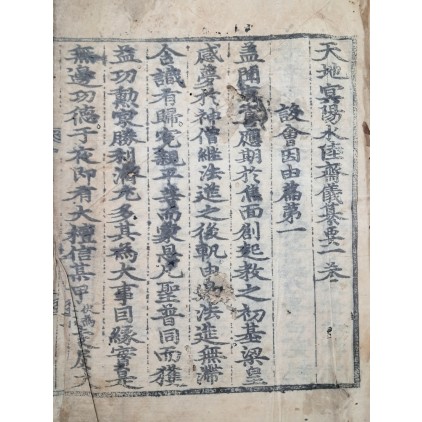 天地冥陽水陸齋儀纂要一卷
設會因由篇第一
盖聞 應期於焦面創起教之初基梁皇
感夢於神僧繼法進之後軌由 法進無滯
含識有歸冤親平等而蒙恩凡聖普同而獲
益功勲寔勝利濟尤多其爲大事因緣寔是
無邊功德于夜即有大檀信某甲伏爲